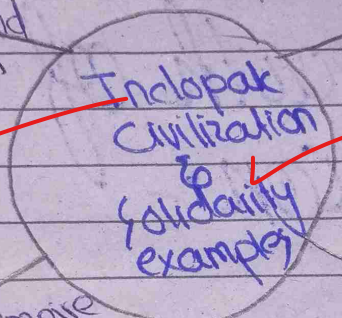 Indopak
Civilization
&
Solidarity
examples